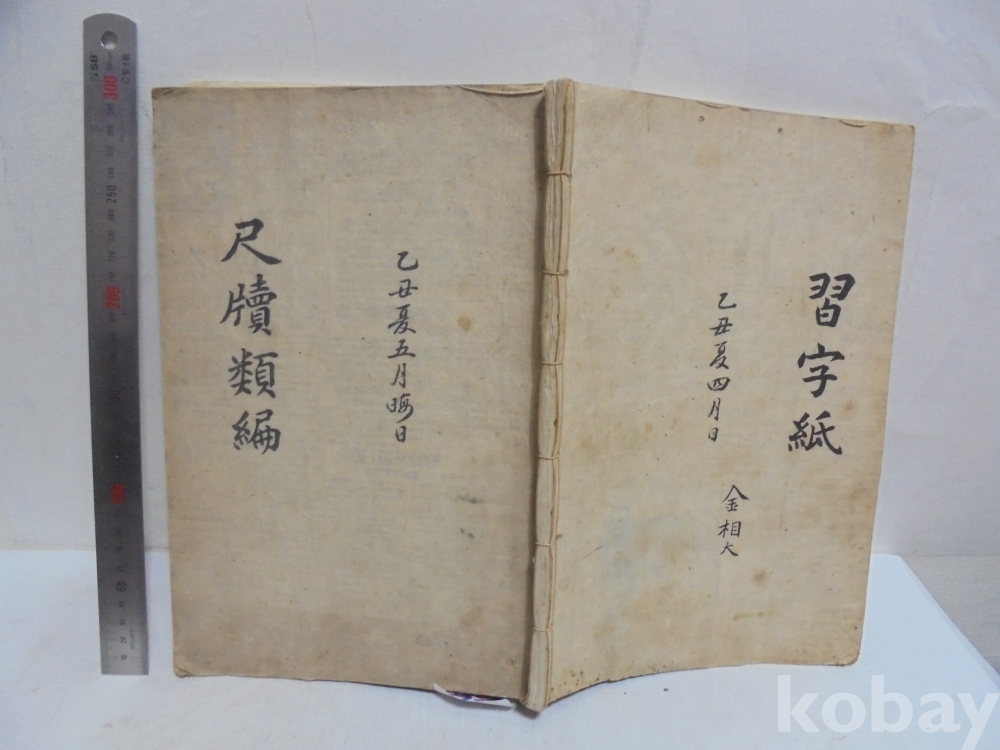 習字紙
乙丑夏四月日
金相大
乙丑夏五月晦日
尺牘類編
300
250
200
kobay